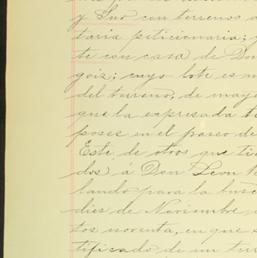 y Sur con terrenos d
taria peticionaria; y
te con casa de Don
goiz; cuyo lote es
del terreno, de mayo
que la expresada
poses en el paseo de
Este de otros que
dos) á Don Leon
lando para la
diez de Noviembre
tos noventa, en que
tificado de un